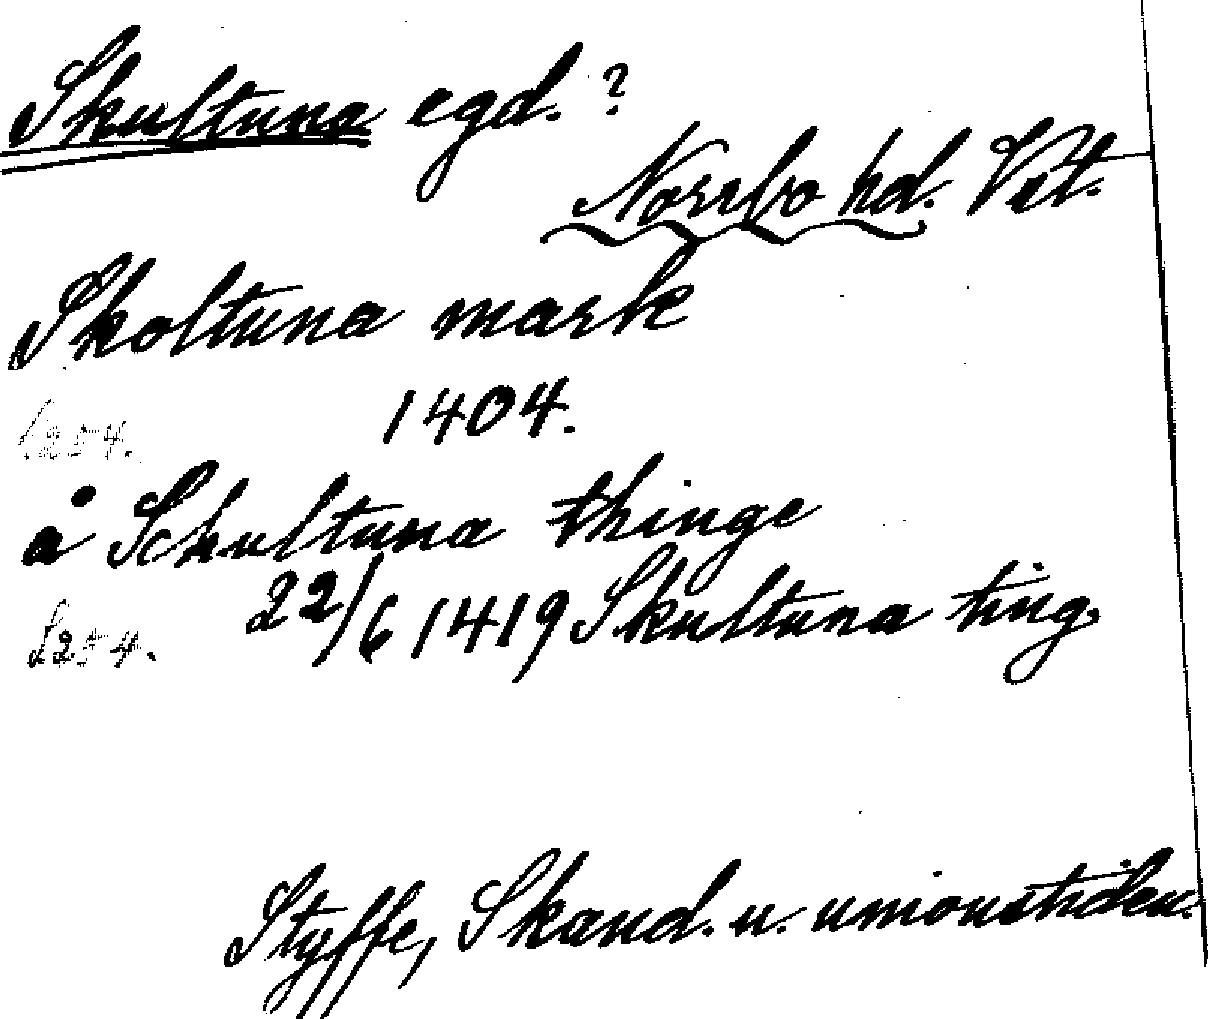 Skultuna egd. ?
Norrbo hd. Vst.
Skoltuna mark
1404.
S 254.
å Schultuna thinge
22/6 1419 Skultuna ting.
S 254.
Styffe, Skand. u. unionstiden.